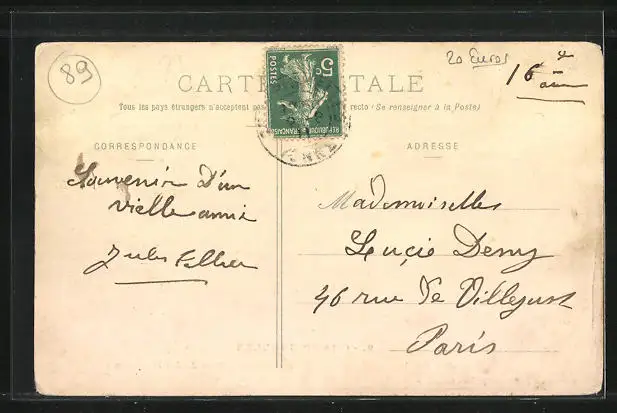 89
20 Euros
16e
CARTE POSTALE
Tous les pays étrangers n'acceptent pas recto (Se renseigner à la Poste)
5c
POSTES
REPUBLIQUE FRANÇAISE
CORRESPONDANCE
Souvenir D'un
vielle amie
Jules
ADRESSE
Mademoiselle
Lucie Demy
46 rue De Villejust
Paris